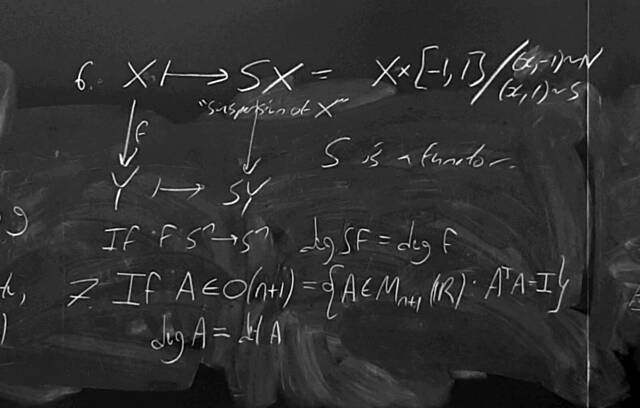 6. X ⟼ SX = X×[-1,1]/(x,-1)~N
(x,1)~S
"suspension of X"
f
S is a functor.
Y ⟼ SY
If f S^n → S^n deg Sf = deg f
7. If A ∈ O(n+1) = {A ∈ M_{n+1}(ℝ) · A^T A = I}
deg A = det A